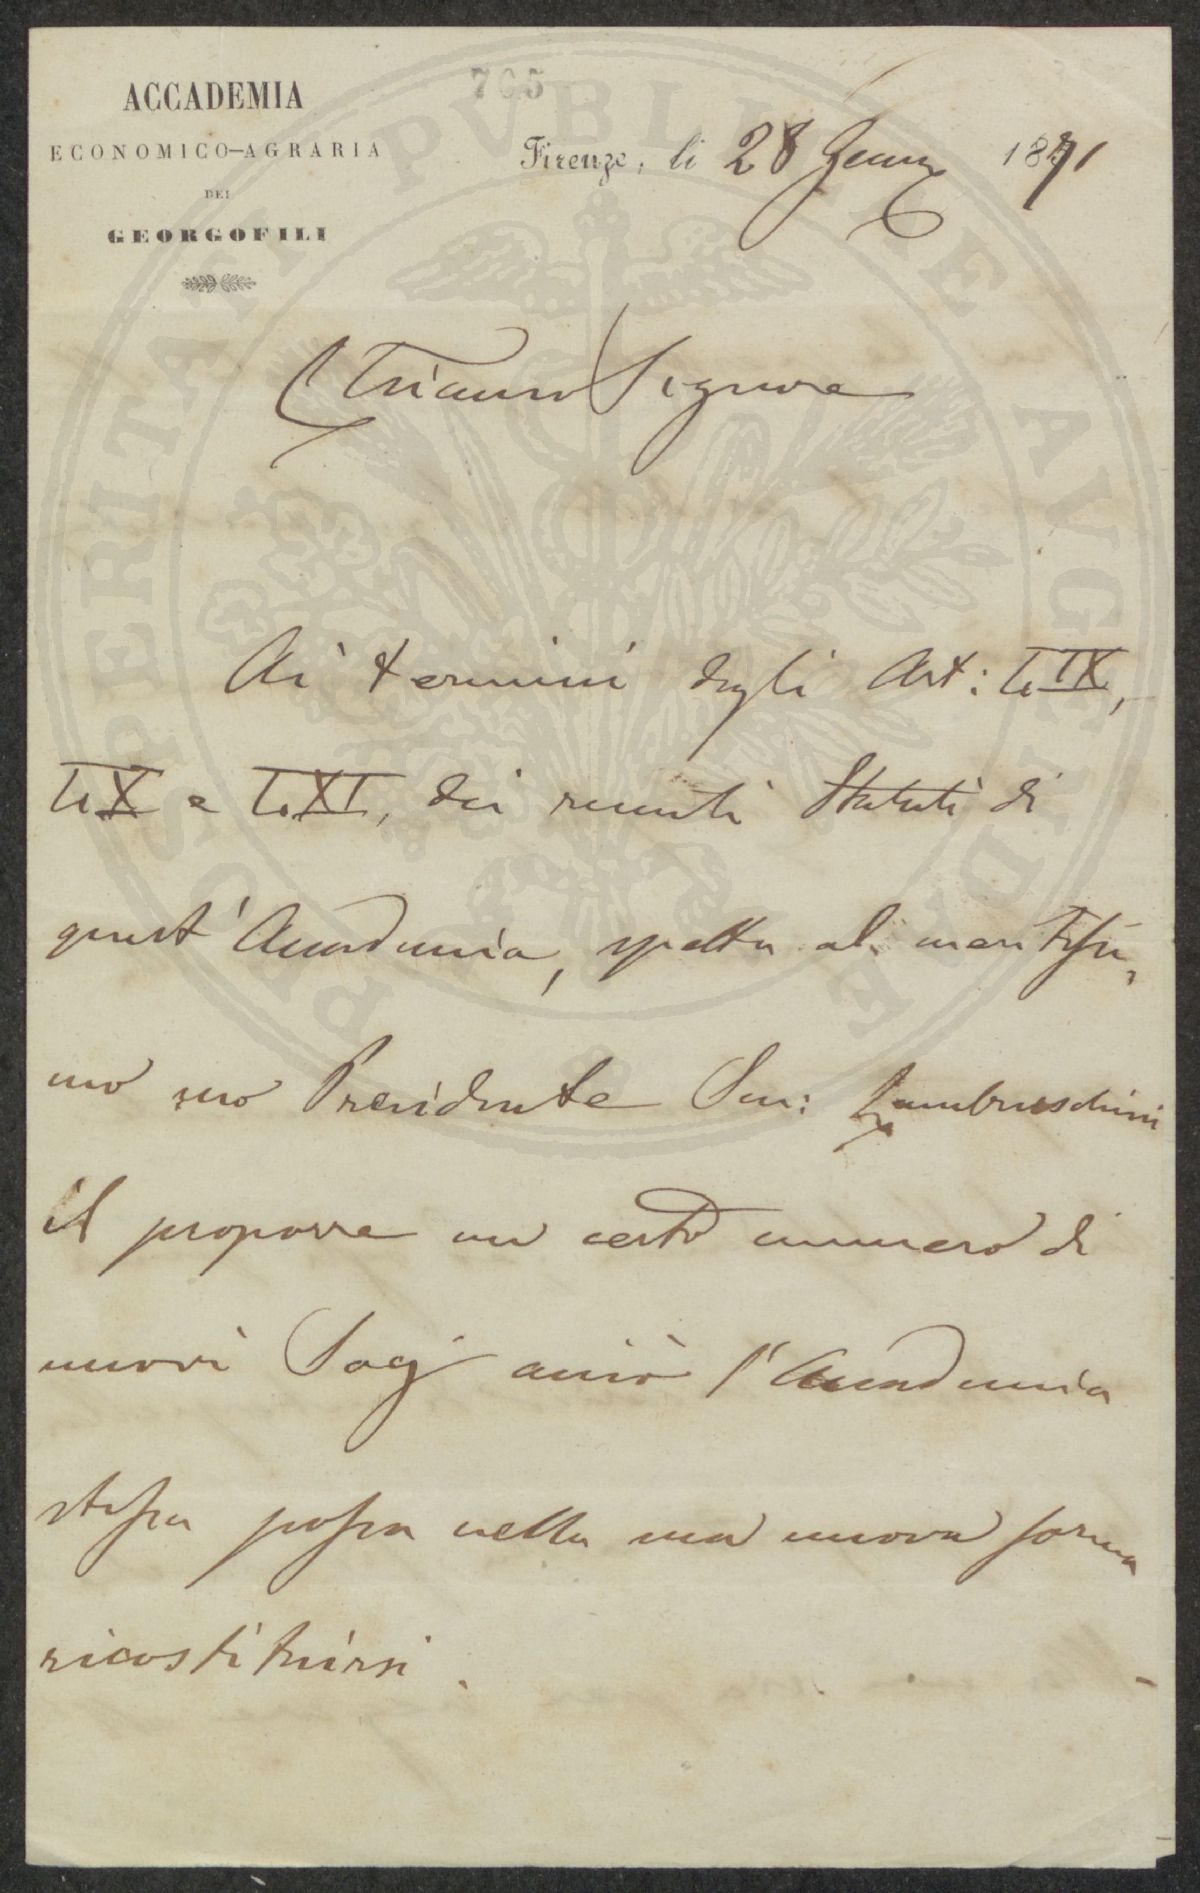 705
ACCADEMIA
ECONOMICO-AGRARIA
DEI
GEORGOFILI
Firenze, li 28 Genn 1871
Chiarmo Signore
Ai termini degli Art: LIX,
LX e LXI, dei recenti Statuti di
quest'Accademia, spetta al meritissi,
mo suo Presidente Sen: Lambruschini
il proporre un certo numero di
nuovi Socj acciò l'Accademia
stessa possa nella sua nuova forma
ricostituirsi.
PROSPERITATI PVBLICAE AVGENDAE